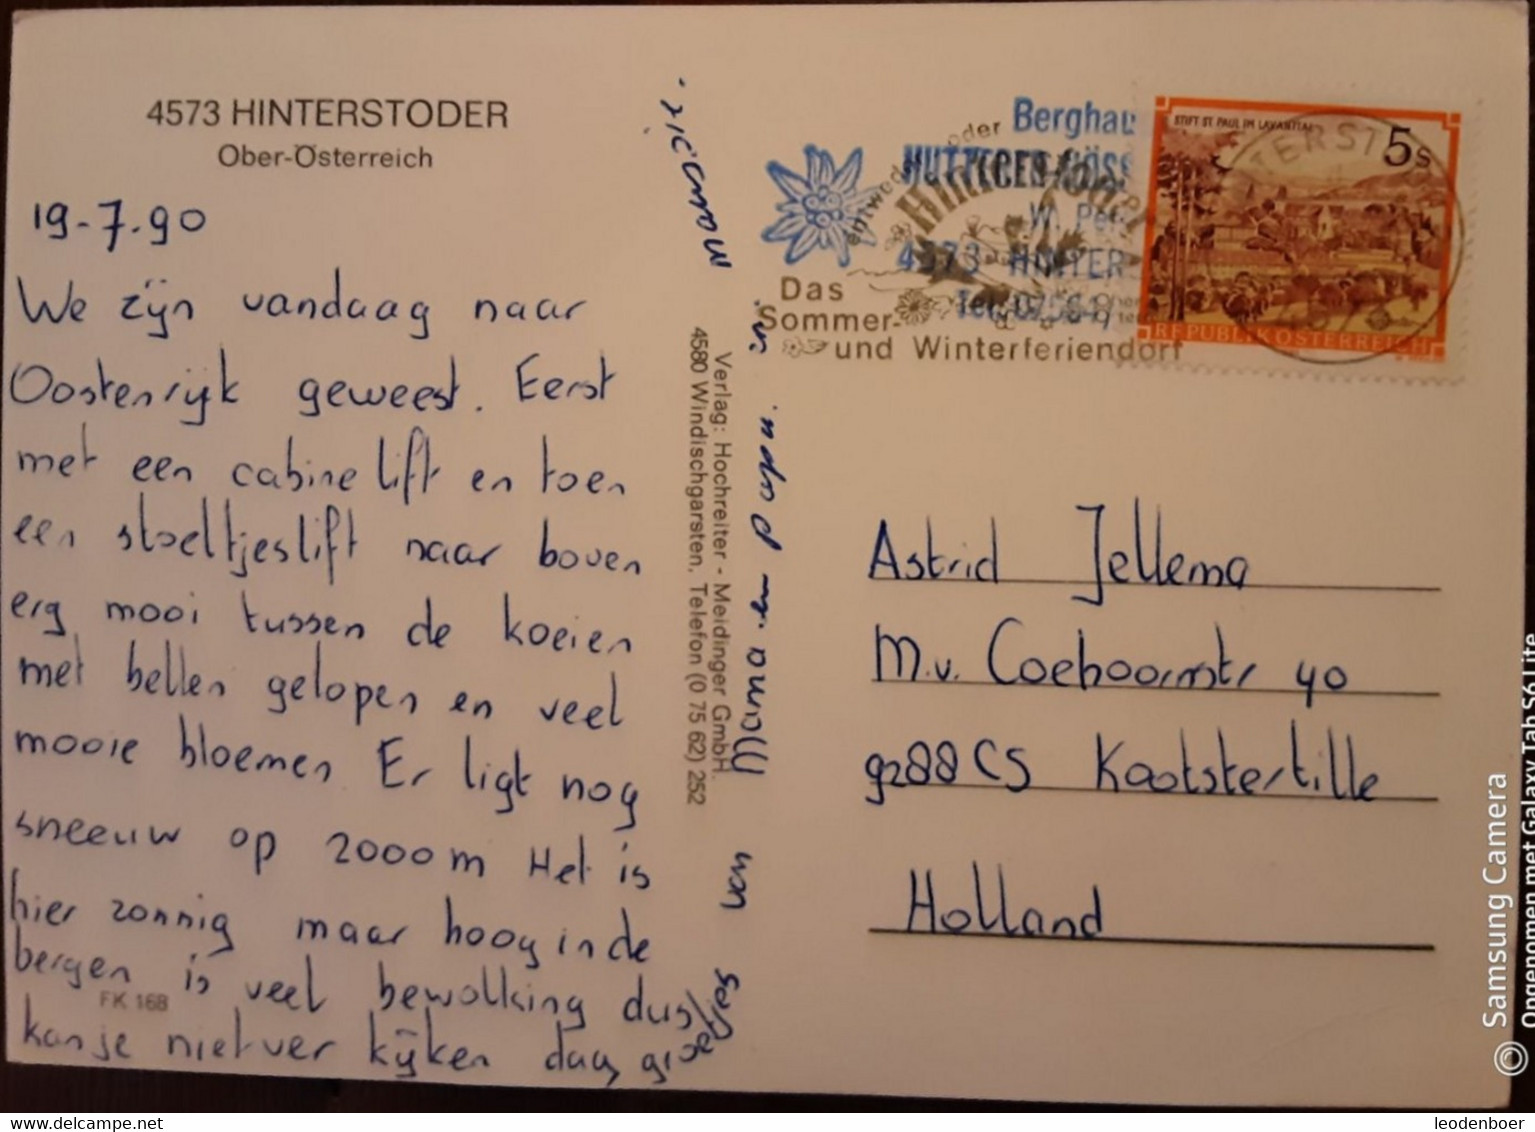 4573 HINTERSTODER
Ober-Österreich
19-7-90
We zijn vandaag naar
Oostenrijk geweest. Eerst
met een cabine lift en toen
een stoeltjeslift naar boven
erg mooi tussen de koeien
met bellen gelopen en veel
mooie bloemen Er ligt nog
sneeuw op 2000m Het is
hier zonnig maar hoog in de
bergen is veel bewolking dus
kan je niet ver kijken dag groetjes
van
Mama en Papa.
FK 168
Verlag: Hochreiter - Meidinger GmbH.
4580 Windischgarsten, Telefon (0 75 62) 252
Berghau
HUTTE HÖSS
W. Pe
4573 HINTER
Tel. 07564
entweder oder
Hinterstoder
Das
Sommer-
und Winterferiendorf
STIFT ST. PAUL IM LAVANTTAL
5S
REPUBLIK ÖSTERREICH
Astrid Jellema
M.v. Coehoornstr 40
9288 CS Kootstertille
Holland
© Samsung Camera
Opgenomen met Galaxy Tab S6 Lite
leodenboer